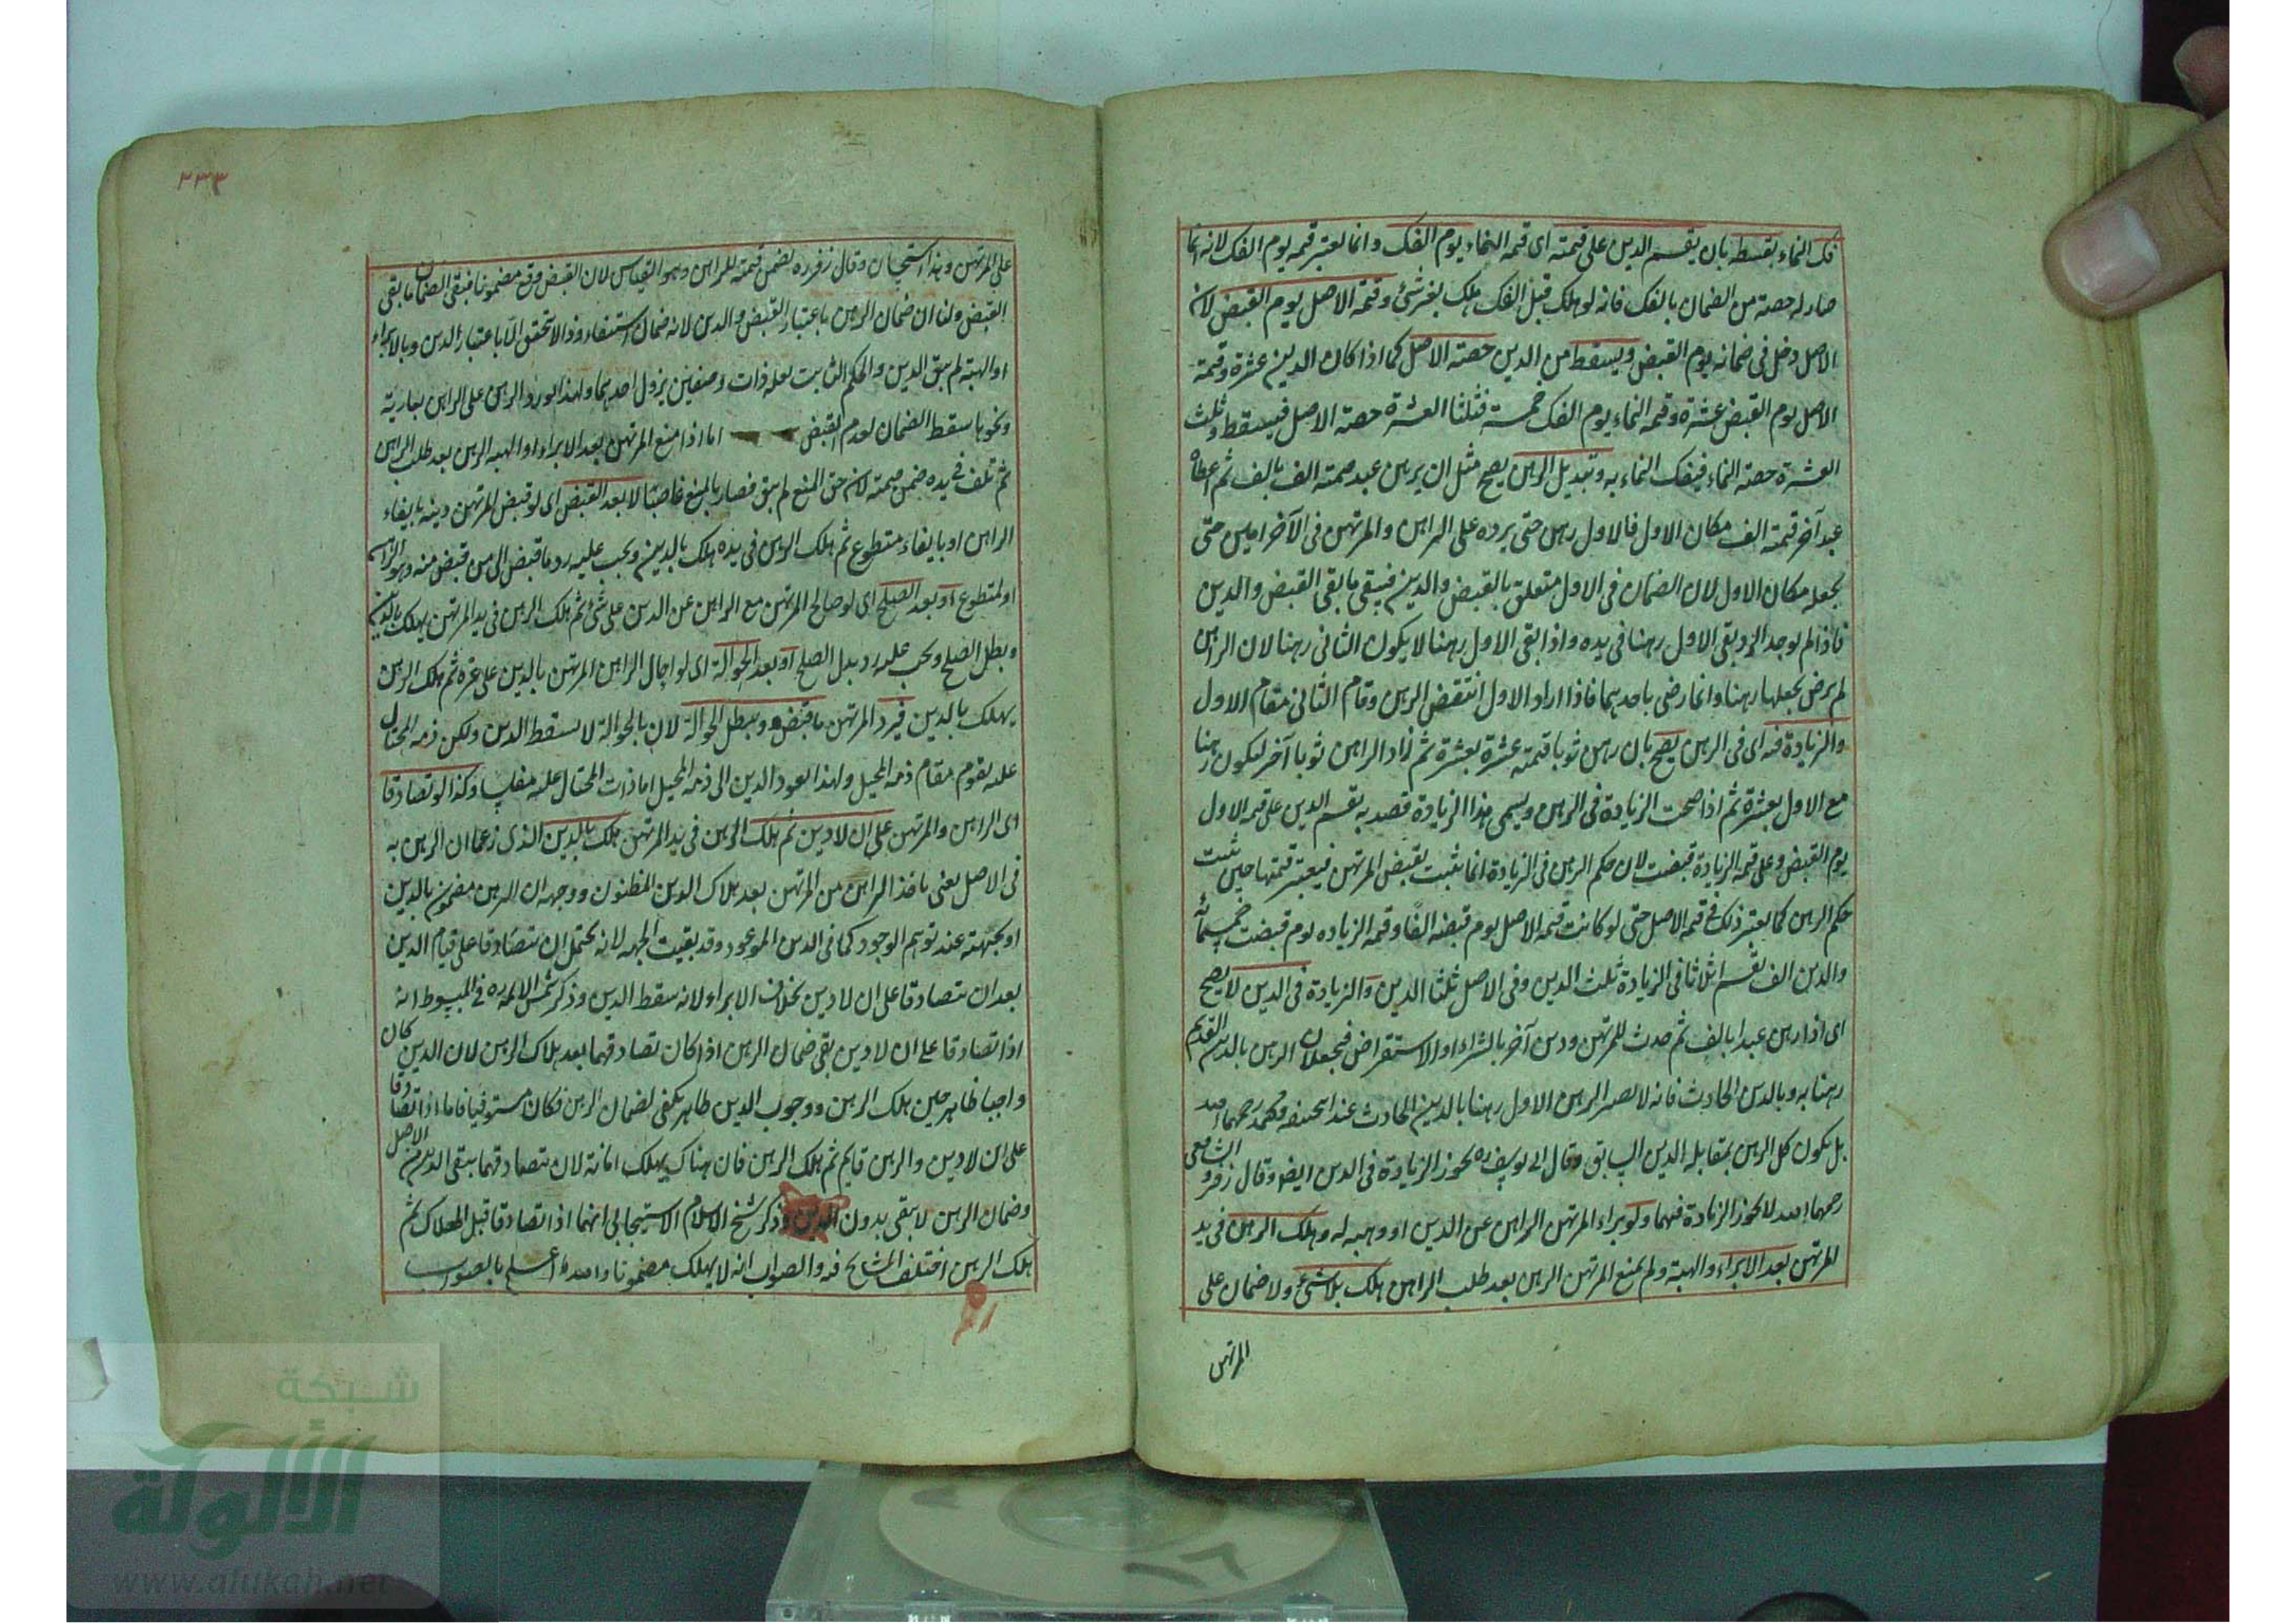 فك النماء بقسطه بان يقسم الدين على قيمته اى قيمة النماء يوم الفك وانما يعتبر قيمه يوم الفك لانه انما
صار له حصة من الضمان بالفك فانه لو هلك قبل الفك هلك بغير شئ وقيمة الاصل يوم القبض لان
الاصل دخل فى ضمانه يوم القبض ويسقط من الدين حصته الاصل كما اذا كان الدين عشرة وقيمة
الاصل يوم القبض عشرة وقيمه النماء يوم الفك خمسة فثلثا العشرة حصته الاصل فيسقط وثلث
العشرة حصته النماء فيفك النماء به وتبديل الرهن يصح مثل ان يرهن عبد قيمته الف بالف ثم اعطاه
عبد آخر قيمته الف مكان الاول فالاول رهن حتى يرده على الراهن والمرتهن فى الآخر امين حتى
يجعله مكان الاول لان الضمان فى الاول متعلق بالقبض والدين فيبقى ما بقى القبض والدين
فاذا لم يوجد الرد بقى الاول رهنا فى يده واذا بقى الاول رهنا لا يكون الثانى رهنا لان الراهن
لم يرض بجعلها رهنا وانما رضى باحدهما فاذا اراد الاول انتقض الرهن وقام الثانى مقام الاول
والزيادة فيه اى فى الرهن يصح بان رهن ثوبا قيمته عشرة بعشرة ثم زاد الراهن ثوبا آخر ليكون رهنا
مع الاول بعشرة ثم اذا صحت الزيادة فى الرهن ويسمى هذا الزيادة قصديه يقسم الدين على قيمه الاول
يوم القبض وعلى قيمه الزيادة قبضت لان حكم الرهن فى الزيادة انما يثبت بقبض المرتهن فيعتبر قيمتها حين ثبت
حكم الرهن كما يعتبر ذلك فى قيمه الاصل حتى لو كانت قيمه الاصل يوم قبضه الفا وقيمه الزياده يوم قبضت خمسمائه
والدين الف يقسم اثلاثا فى الزيادة ثلث الدين وفى الاصل ثلثا الدين والزيادة فى الدين لا يصح
اى اذا رهن عبدا بالف ثم حدث للمرتهن ودين آخر بالشراء او الاستقراض فيجعلان الرهن بالدين القديم
رهنا به وبالدين الحادث فانه لا يصير الرهن الاول رهنا بالدين الحادث عند ابيحنيفه ومحمد رحمهما الله
بل يكون كل الرهن بمقابله الدين السابق وقال ابى يوسف ره يجوز الزيادة فى الدين ايضا وقال زفر والشافعى
رحمهما الله لا يجوز الزيادة فيهما ولو براء المرتهن الراهن عن الدين او وهبه له وهلك الرهن فى يد
المرتهن بعد الابراء والهبة ولم يمنع المرتهن الرهن بعد طلب الراهن هلك بلا شئ ولا ضمان على
المرتهن
٢٣٣
على المرتهن وهذا استحسان وقال زفر ره يضمن قيمته للراهن وهو القياس لان القبض وقع مضمونا فبقى الضمان ما بقى
القبض ولنا ان ضمان الرهن باعتبار القبض والدين لانه ضمان استيفاء وذا لا يتحقق الا باعتبار الدين وبالابراء
او الهبة لم يبق الدين والحكم الثابت بعله ذات وصفين يزول باحدهما ولهذا لو رد الرهن على الراهن بعارية
ونحوها سقط الضمان لعدم القبض اما اذا منع المرتهن بعد الابراء او الهبه الرهن بعد طلب الراهن
ثم تلف فى يده ضمن قيمته لان حق المنع لم يبق فصار بالمنع غاصبا لا بعد القبض اى لو قبض المرتهن دينه بايفاء
الراهن او بايفاء متطوع ثم هلك الرهن فى يده هلك بالدين ويجب عليه رد ما قبض الى من قبض منه وهو الراهن
او المتطوع او بعد الصلح اى لو صالح المرتهن مع الراهن عن الدين على شئ ثم هلك الرهن فى يد المرتهن يهلك بالدين
ويبطل الصلح ويجب عليه رد بدل الصلح او بعد الحوالة اى لو احال الراهن المرتهن بالدين على غيره ثم هلك الرهن
يهلك بالدين فيرد المرتهن ما قبض ويبطل الحوالة لان بالحوالة لا يسقط الدين ولكن ذمه المحتال
عليه يقوم مقام ذمه المحيل ولهذا يعود الدين الى ذمه المحيل اذا مات المحتال عليه مفلسا وكذا لو تصادقا
اى الراهن والمرتهن على ان لا دين ثم هلك الرهن فى يد المرتهن هلك بالدين الذى زعما ان الرهن به
فى الاصل يعنى ياخذ الراهن من المرتهن بعد هلاك الدين المظنون ووجهه ان الرهن مضمون بالدين
او بجهته عند توهم الوجود كما فى الدين الموعود وقد بقيت الجهه لانه يحتمل ان يتصادقا على قيام الدين
بعد ان تصادقا على ان لا دين بخلاف الابراء لانه سقط الدين وذكر شمس الائمه ره فى المبسوط انه
اذا تصادقا على ان لا دين بقى ضمان الرهن اذا كان تصادقهما بعد هلاك الرهن لان الدين كان
واجبا ظاهر حين هلك الرهن ووجوب الدين ظاهر يكفى لضمان الرهن فكان مستوفيا فاما اذا تصادقا
على ان لا دين والرهن قايم ثم هلك الرهن فان هناك يهلك امانة لان بتصادقهما ينتفى الدين من الاصل
وضمان الرهن لا يبقى بدون الدين وذكر شيخ الاسلام الاسبيجابى انهما اذا تصادقا قبل الهلاك ثم
هلك الرهن اختلف المشايخ فيه والصواب انه لا يهلك مضمونا والله اعلم بالصواب
شبكة
الألوكة
www.alukah.net